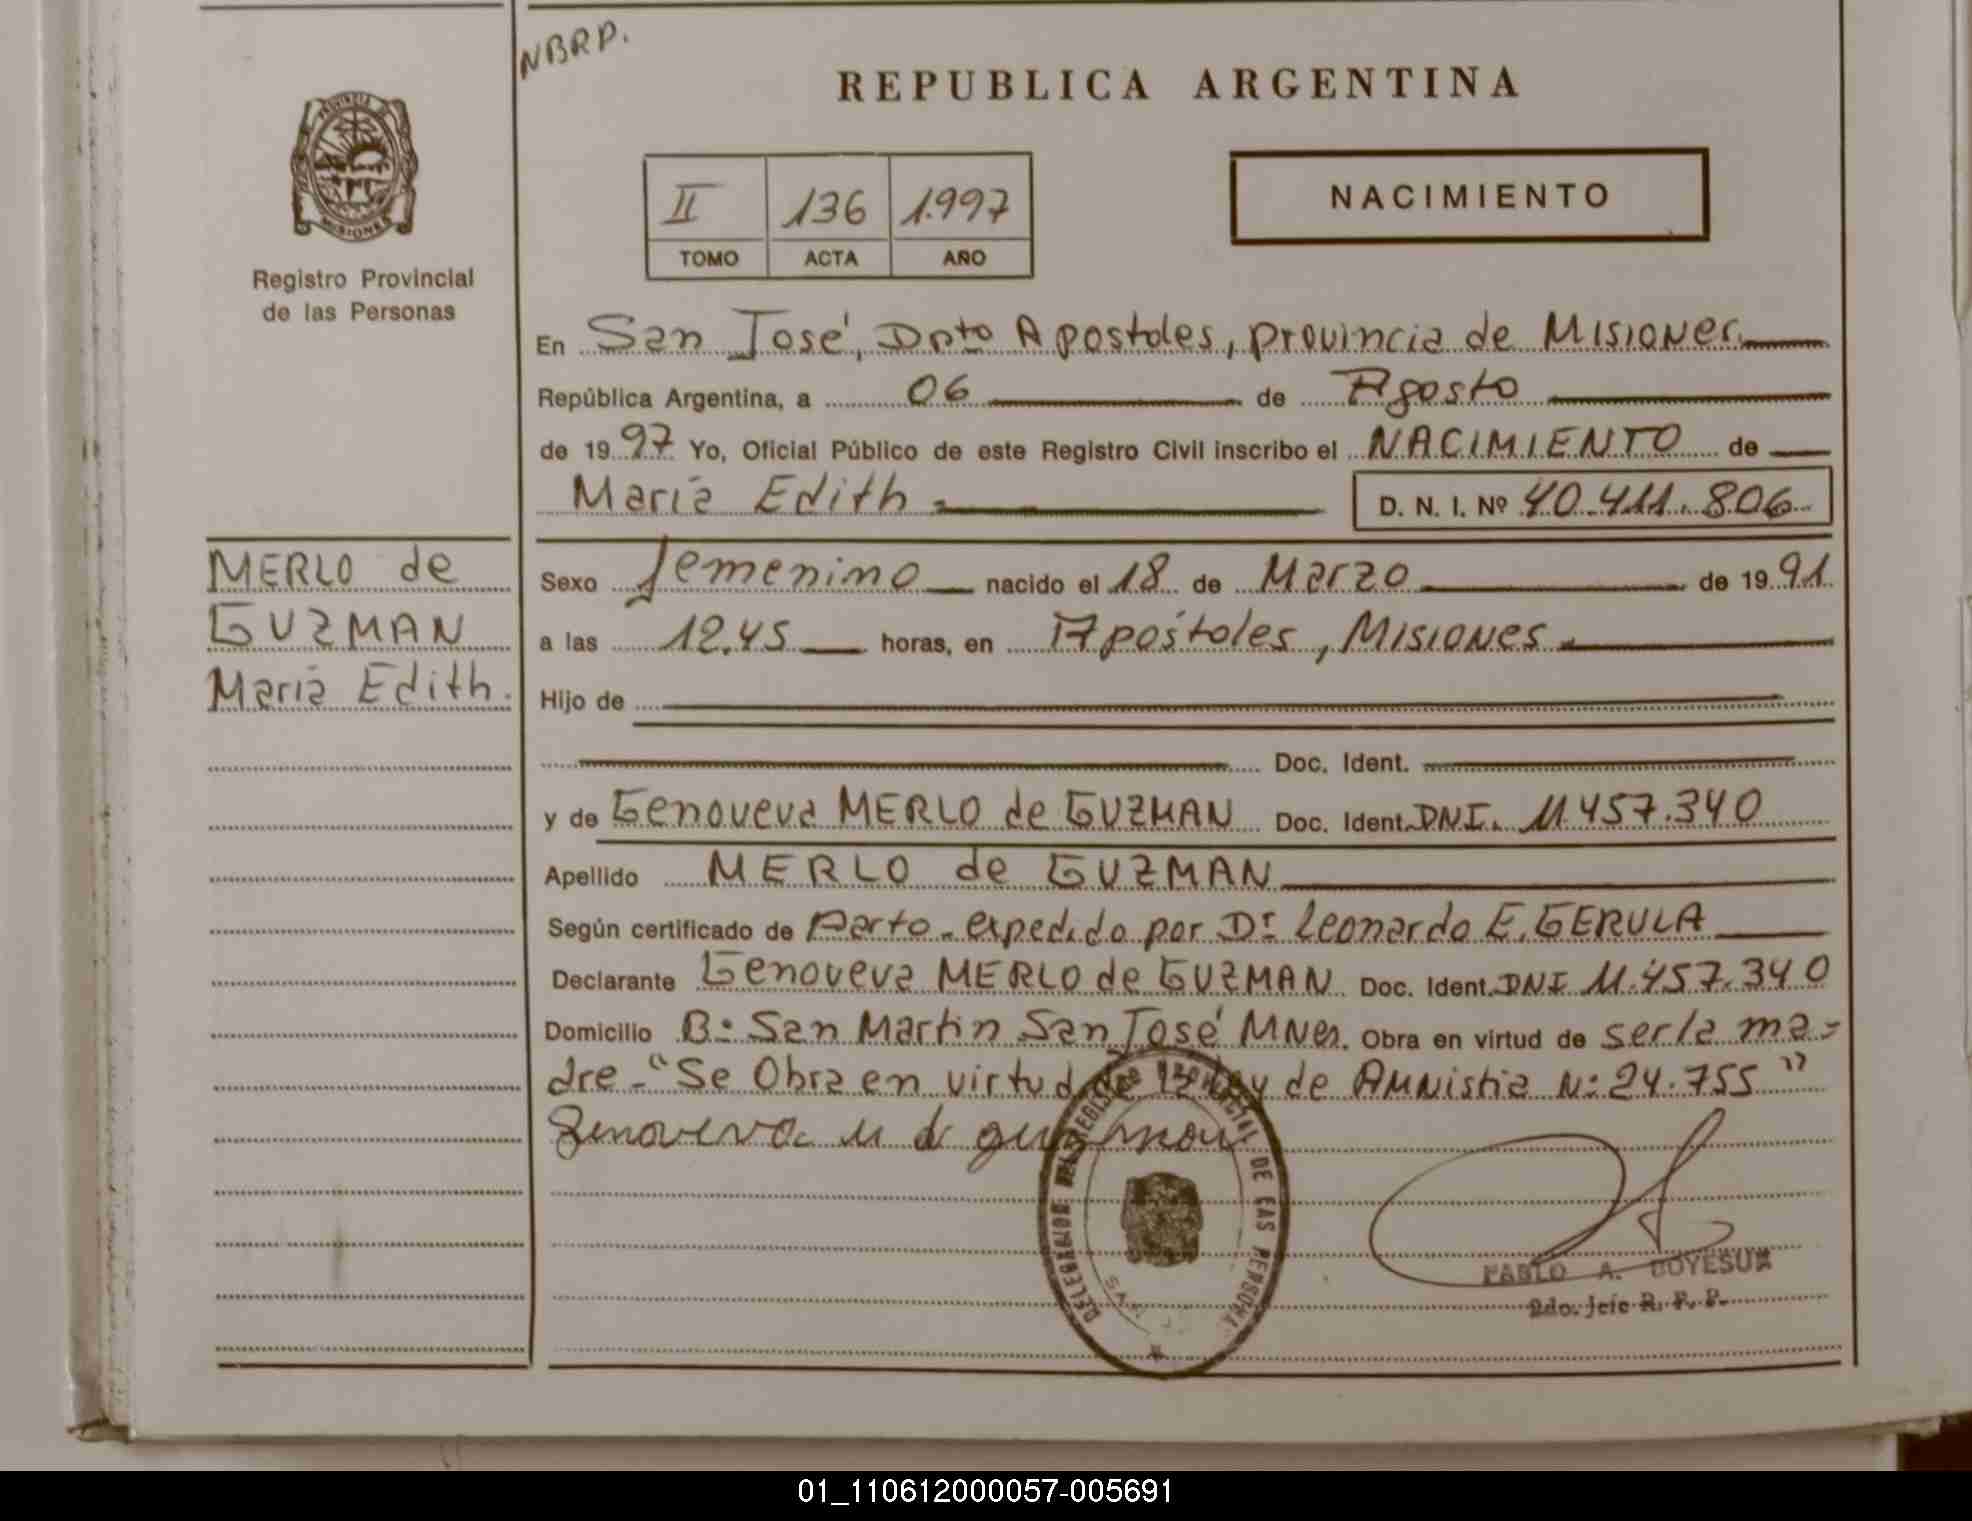 NBRP.
REPUBLICA ARGENTINA
PROVINCIA DE
MISIONES
Registro Provincial
de las Personas
II 136 1.997
TOMO ACTA AÑO
NACIMIENTO
En San José, Dpto Apostoles, provincia de Misiones
República Argentina, a 06 de Agosto
de 1997 Yo, Oficial Público de este Registro Civil inscribo el NACIMIENTO de
María Edith D. N. I. Nº 40.411.806
MERLO de
GUZMAN
María Edith.
Sexo femenino nacido el 18 de Marzo de 1991
a las 12.45 horas, en Apóstoles, Misiones
Hijo de
Doc. Ident.
y de Genoveva MERLO de GUZMAN Doc. Ident. DNI. 11.457.340
Apellido MERLO de GUZMAN
Según certificado de Parto - expedido por Dr Leonardo E. GERULA
Declarante Genoveva MERLO de GUZMAN Doc. Ident. DNI 11.457.340
Domicilio B: San Martin San José MNes. Obra en virtud de ser la ma-
dre - "Se Obra en virtud de la Ley de AMNistia N: 24.755"
Genoveva M de guzman
DELEGACION DEL REGISTRO PROVINCIAL DE LAS PERSONAS
SAN
PABLO A. BOYESUK
2do. Jefe R. P. P.
01_110612000057-005691